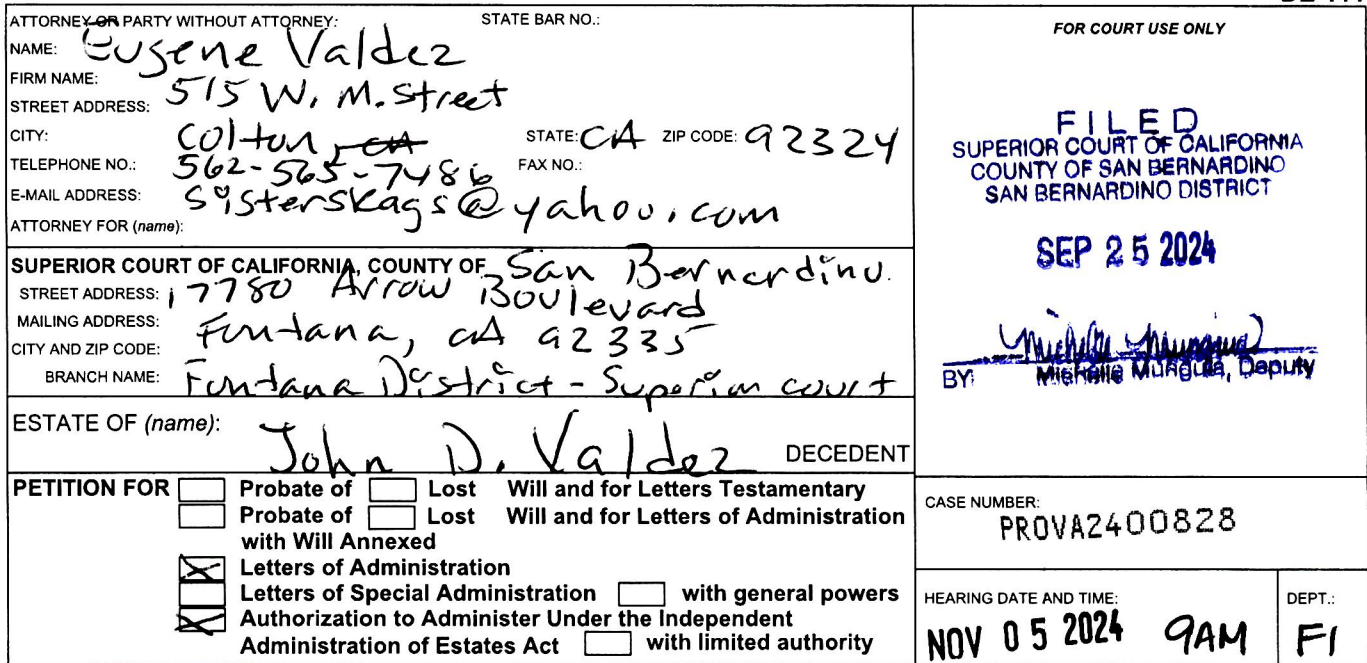 ATTORNEY OR PARTY WITHOUT ATTORNEY: STATE BAR NO.:
NAME: Eugene Valdez
FIRM NAME:
STREET ADDRESS: 515 W. M. Street
CITY: Colton, CA STATE: CA ZIP CODE: 92324
TELEPHONE NO.: 562-565-7486 FAX NO.:
E-MAIL ADDRESS: sisterskags@yahoo.com
ATTORNEY FOR (name):
SUPERIOR COURT OF CALIFORNIA, COUNTY OF San Bernardino.
STREET ADDRESS: 17780 Arrow Boulevard
MAILING ADDRESS:
CITY AND ZIP CODE: Fontana, CA 92335
BRANCH NAME: Fontana District - Superior court
ESTATE OF (name): John D. Valdez DECEDENT
PETITION FOR Probate of Lost Will and for Letters Testamentary
Probate of Lost Will and for Letters of Administration
with Will Annexed
Letters of Administration
Letters of Special Administration with general powers
Authorization to Administer Under the Independent
Administration of Estates Act with limited authority
FOR COURT USE ONLY
FILED
SUPERIOR COURT OF CALIFORNIA
COUNTY OF SAN BERNARDINO
SAN BERNARDINO DISTRICT
SEP 25 2024
BY: Michelle Munguia, Deputy
CASE NUMBER:
PROVA2400828
HEARING DATE AND TIME:
NOV 05 2024 9AM
DEPT.:
F1